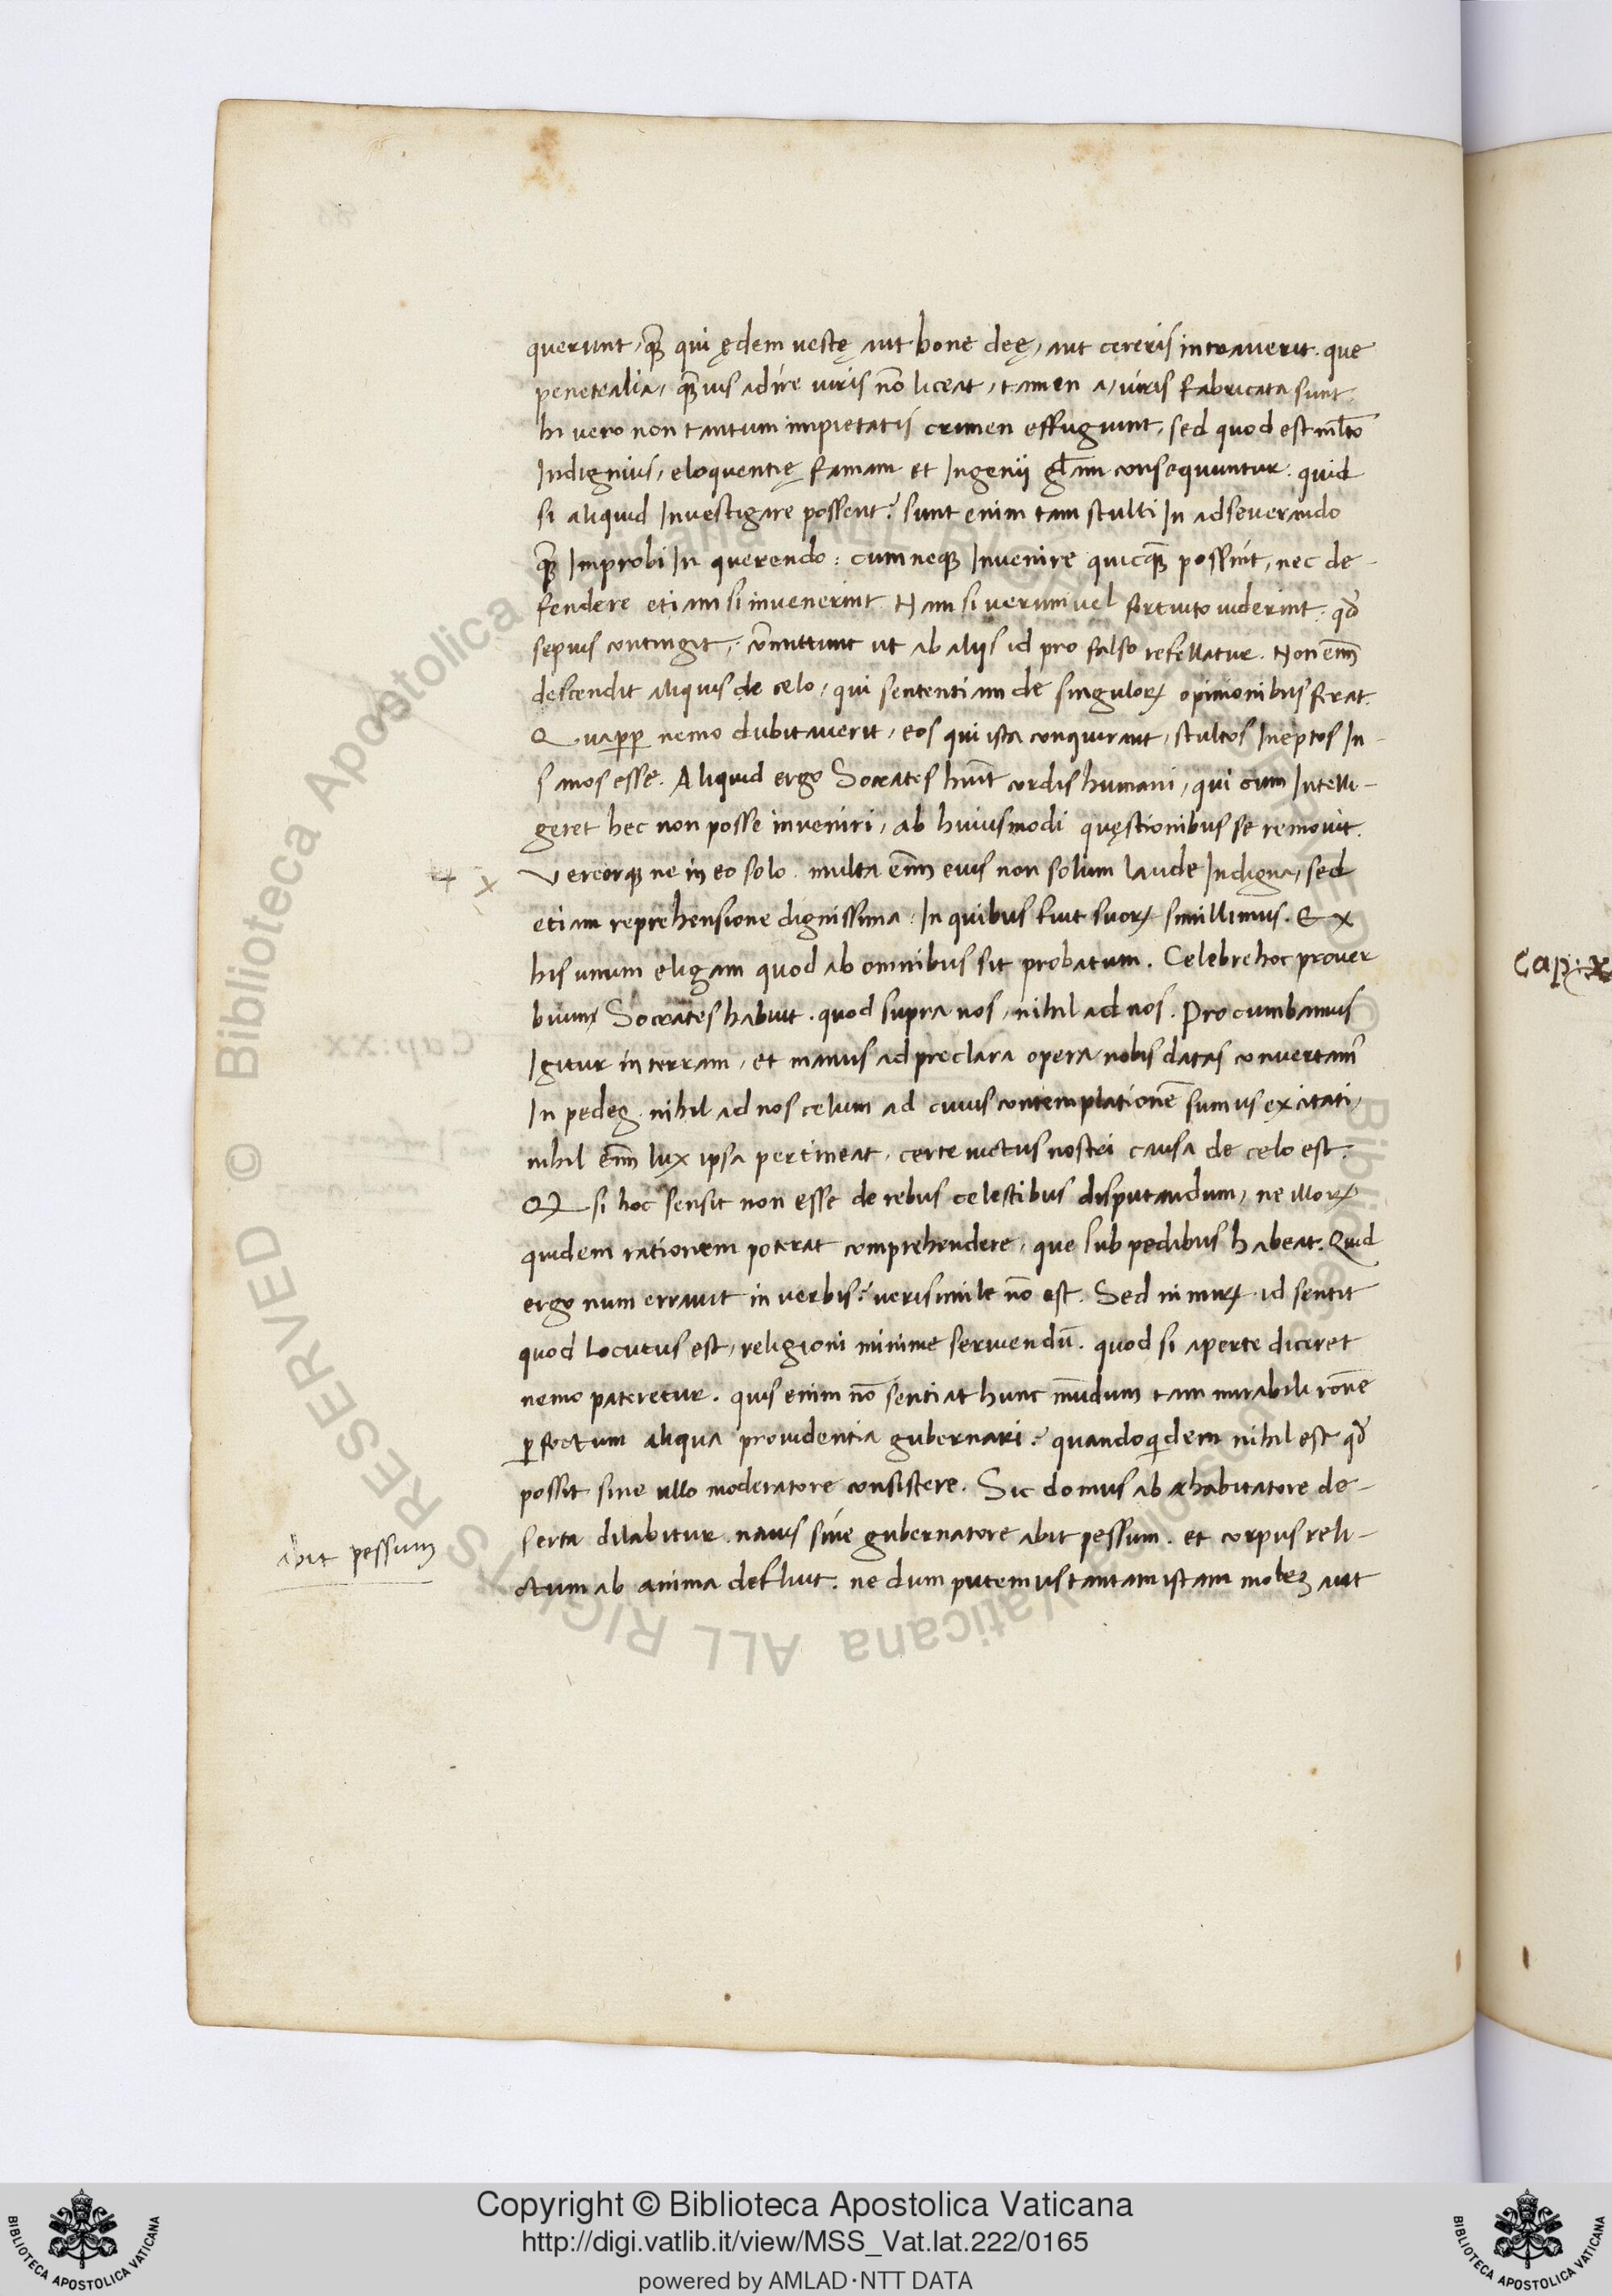 querunt, q̃ qui ędem vestę aut bone deę, aut cereris intraverit. que
penetralia, q̃vis adire viris nō liceat, tamen a, viris fabricata sunt.
hi vero non tantum impietatis crimen effugiunt, sed quod est ml̃to
Indignius, eloquentię famam et Ingenii gl̃am consequuntur. quid
si aliquid Investigare possent? sunt enim tam stulti In adseverando
q̃ Improbi In querendo: cum neqꝫ Invenire quicq̃ possint, nec de-
fendere etiam si invenerint. Nam si verum vel fortuito viderint. qđ
sepius contingit, cõmittunt ut ab aliis id pro falso refellatur. Non eñi
descendit aliquis de celo, qui sententiam de singuloꝝ opinionibus ferat.
Quaꝓp nemo dubitaverit, eos qui ista conquirant, stultos Ineptos In-
sanos esse. Aliquid ergo Socrates huĩt cordis humani, qui cum Intelli-
geret hec non posse inveniri, ab huiusmodi quęstionibus se removit.
Vereorqꝫ ne in eo solo. multa eñi eius non solum laude Indigna, sed
etiam reprehensione dignissima. In quibus fuit suoꝝ simillimus. Ex
his unum eligam quod ab omnibus sit probatum. Celebre hoc prover
bium Socrates habuit. quod supra nos, nihil ad nos. Procumbamus
Igitur in terram, et manus ad preclara opera nobis datas convertam᾽
In pedeꝫ. nihil ad nos celum ad cuius contemplationẽ sumus excitati,
nihil eñi lux ipsa pertineat, certe victus nostri causa de celo est.
Qđ si hoc sensit non esse de rebus celestibus disputandum, ne illoꝝ
quidem rationem poterat comprehendere, que sub pedibus habeat. Quid
ergo num erravit in verbis? verisimile nō est. Sed nimiꝝ id sentit
quod locutus est, religioni minime serviendũ. quod si aperte diceret
nemo pateretur. quis enim nō sentiat hunc mũdum tam mirabili rõne
ꝑfectum aliqua providentia gubernari? quandoqidem nihil est qđ
possit sine ullo moderatore consistere. Sic domus ab habitatore de-
serta dilabitur. navis sine gubernatore abit pessum. et corpus reli-
ctum ab anima defluit. ne dum putemus tantam istam moleꝫ aut
abit pessum
Cap: x
Copyright © Biblioteca Apostolica Vaticana
http://digi.vatlib.it/view/MSS_Vat.lat.222/0165
powered by AMLAD·NTT DATA
BIBLIOTECA APOSTOLICA VATICANA
BIBLIOTECA APOSTOLICA VATICANA
© Biblioteca Apostolica Vaticana ALL RIGHTS RESERVED